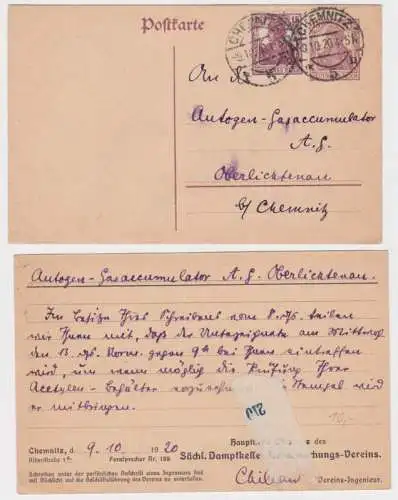 Postkarte
CHEMNITZ
CHEMNITZ
10.20.
An die
Autogen-Gasaccumulator
A.G.
Oberlichtenau
b/ Chemnitz
Autogen-Gasaccumulator A.G. Oberlichtenau.
Im Besitze Ihres Schreibens vom 8. ds. teilen
wir Ihnen mit, daß der Unterzeichnete am Mittwoch
den 13. ds. Vorm. gegen 9h bei Ihnen eintreffen
wird, um wenn möglich die Prüfung Ihrer
Acetylen-Behälter Stempel wird
er mitbringen.
210
10,-
Chemnitz, d. 9. 10. 1920
Fernsprecher Nr. 186
Haupt des
Sächs. Dampfkessel Vereins.
Vereins-Ingenieur.
Schreiben unter der persönlichen Anschrift eines Ingenieurs sind
mit Rücksicht auf die Geschäftsführung des Vereins zu unterlassen